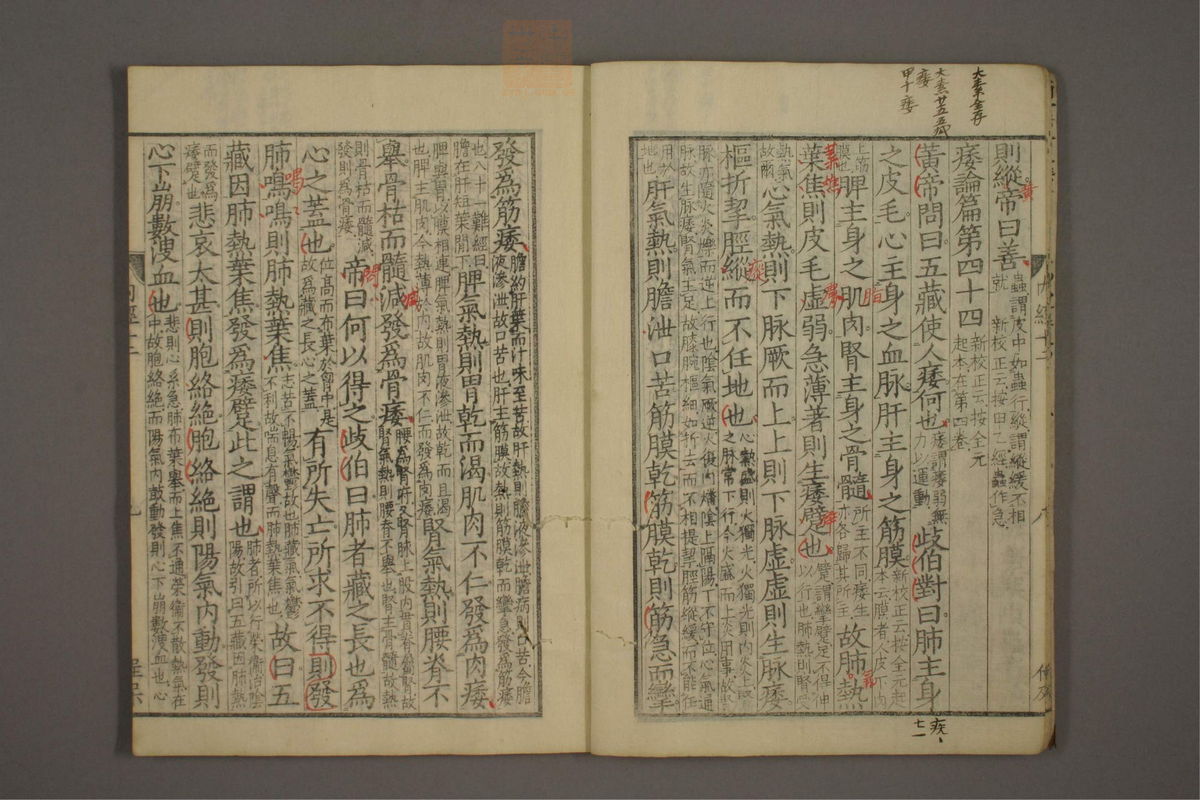 大素全存
大素廿五五藏痿
甲十痿
則縱帝曰善蟲謂皮中如蟲行縱謂縱緩不相就 新校正云按甲乙經蟲作急
痿論篇第四十四新校正云按全元起本在第四卷
黃帝問曰五藏使人痿何也痿謂痿弱無力以運動歧伯對曰肺主身
之皮毛心主身之血脉肝主身之筋膜新校正云按全元起本云膜者人皮下肉
上筋膜也脾主身之肌肉腎主身之骨髓所主不同痿生亦各歸其所主故肺熱
葉焦則皮毛虛弱急薄著則生痿躄也躄謂攣躄足不得伸以行也肺熱則腎受
熱氣故爾心氣熱則下脉厥而上上則下脉虛虛則生脉痿
樞折挈脛縱而不任地也心熱盛則火獨光火獨光則內炎上腎之脉常下行今火盛而上炎用事故腎
脉亦隨火炎爍而逆上行也陰氣厥逆火復內燔陰上隔陽下不守位心氣通脉故生脉痿腎氣主足故膝腕樞紐如折去而不相提挈脛筋縱緩而不能任
用於地也肝氣熱則膽泄口苦筋膜乾筋膜乾則筋急而攣
發為筋痿膽約肝葉而汁味至苦故肝熱則膽液滲泄膽病則口苦今膽液滲泄故口苦也肝主筋膜故熱則筋膜乾而攣急發為筋痿
也八十一難經曰膽在肝短葉間下脾氣熱則胃乾而渴肌肉不仁發為肉痿
脾與胃以膜相連脾氣熱則胃液滲泄故乾而且渴也脾主肌肉今熱薄於內故肌肉不仁而發為肉痿腎氣熱則腰脊不
舉骨枯而髓減發為骨痿腰為腎府又腎脉上股內貫脊屬腎故腎氣熱則腰脊不舉也腎主骨髓故熱
則骨枯而髓減發則為骨痿帝曰何以得之歧伯曰肺者藏之長也為
心之蓋也位高而布葉於胷中是故為藏之長心之蓋有所失亡所求不得則發
肺鳴鳴則肺熱葉焦志苦不暢氣鬱故也肺藏氣氣鬱不利故喘息有聲而肺熱葉焦也故曰五
藏因肺熱葉焦發為痿躄此之謂也肺者所以行榮衞治陰陽故引曰五藏因肺熱
而發為痿躄也悲哀太甚則胞絡絕胞絡絕則陽氣內動發則
心下崩數溲血也悲則心系急肺布葉舉而上焦不通榮衞不散熱氣在中故胞絡絕而陽氣內鼓動發則心下崩數溲血也心